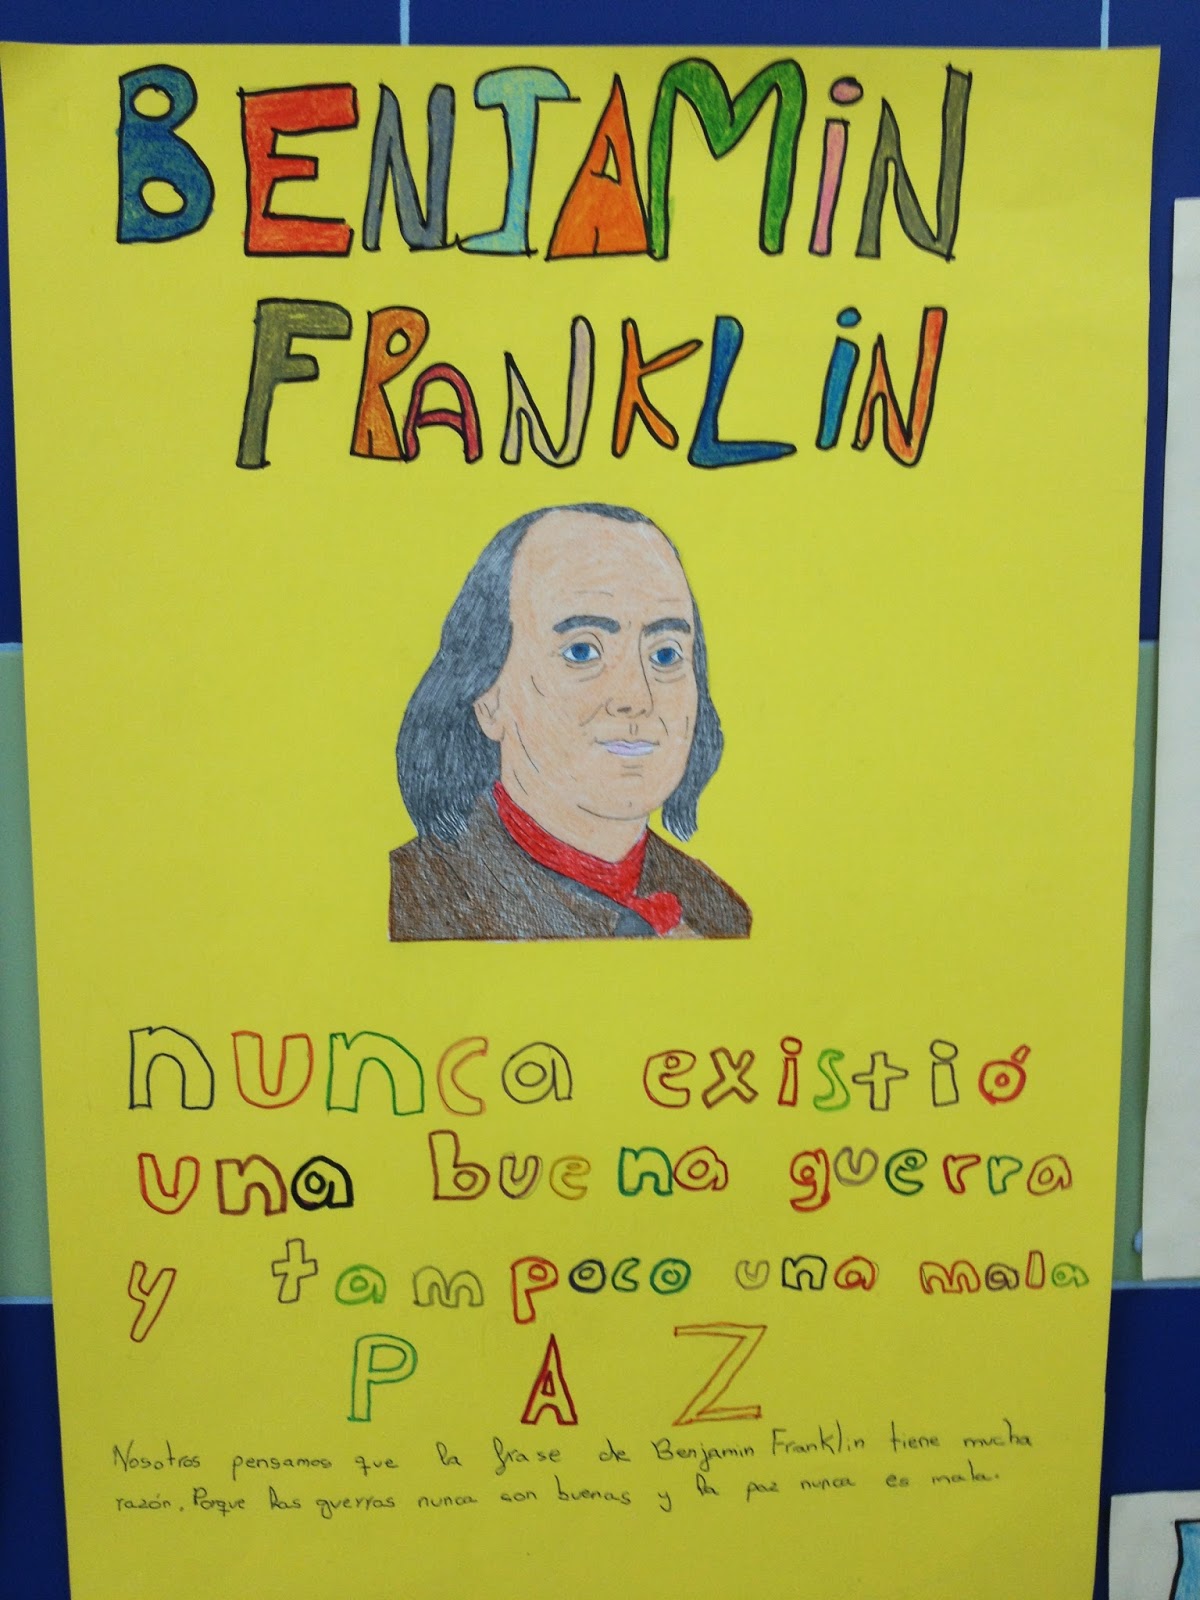 BENJAMiN
FRANKLiN
nunca existió
una buena guerra
y tampoco una mala
PAZ
Nosotros pensamos que la frase de Benjamin Franklin tiene mucha
razón. Porque las guerras nunca son buenas y la paz nunca es mala.